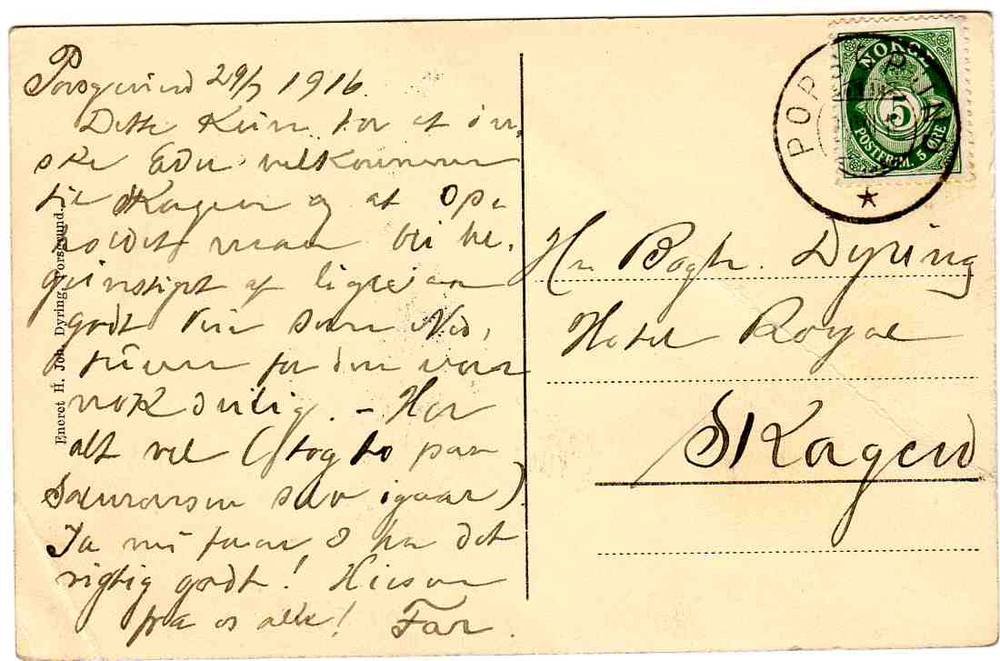 Porsgrund 29/7 1916.
Dette Kun for at øn-
ske Eder velkommen
til Skagen og at Opo
holdet maa bli be-
gunstiget af ligesaa
godt Veir som Ned-
turen for den var
nok deilig. – Her
alt vel (tog to paa
igaar)
Ja nu faar I ha det
rigtig godt! Hilsen
fra os alle! Far.
Eneret H. Joh. Dyring, Porsgrund.
NORGE
5
POSTFRIM. 5 ØRE
Hr Bogh. Dyring
Hotel Royal
Skagen